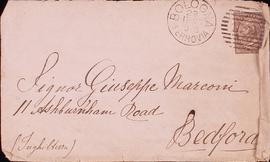 BOLOGNA
FERROVIA
Signor Giuseppe Marconi
11 Ashburnham Road
Bedford
(Inghilterra)